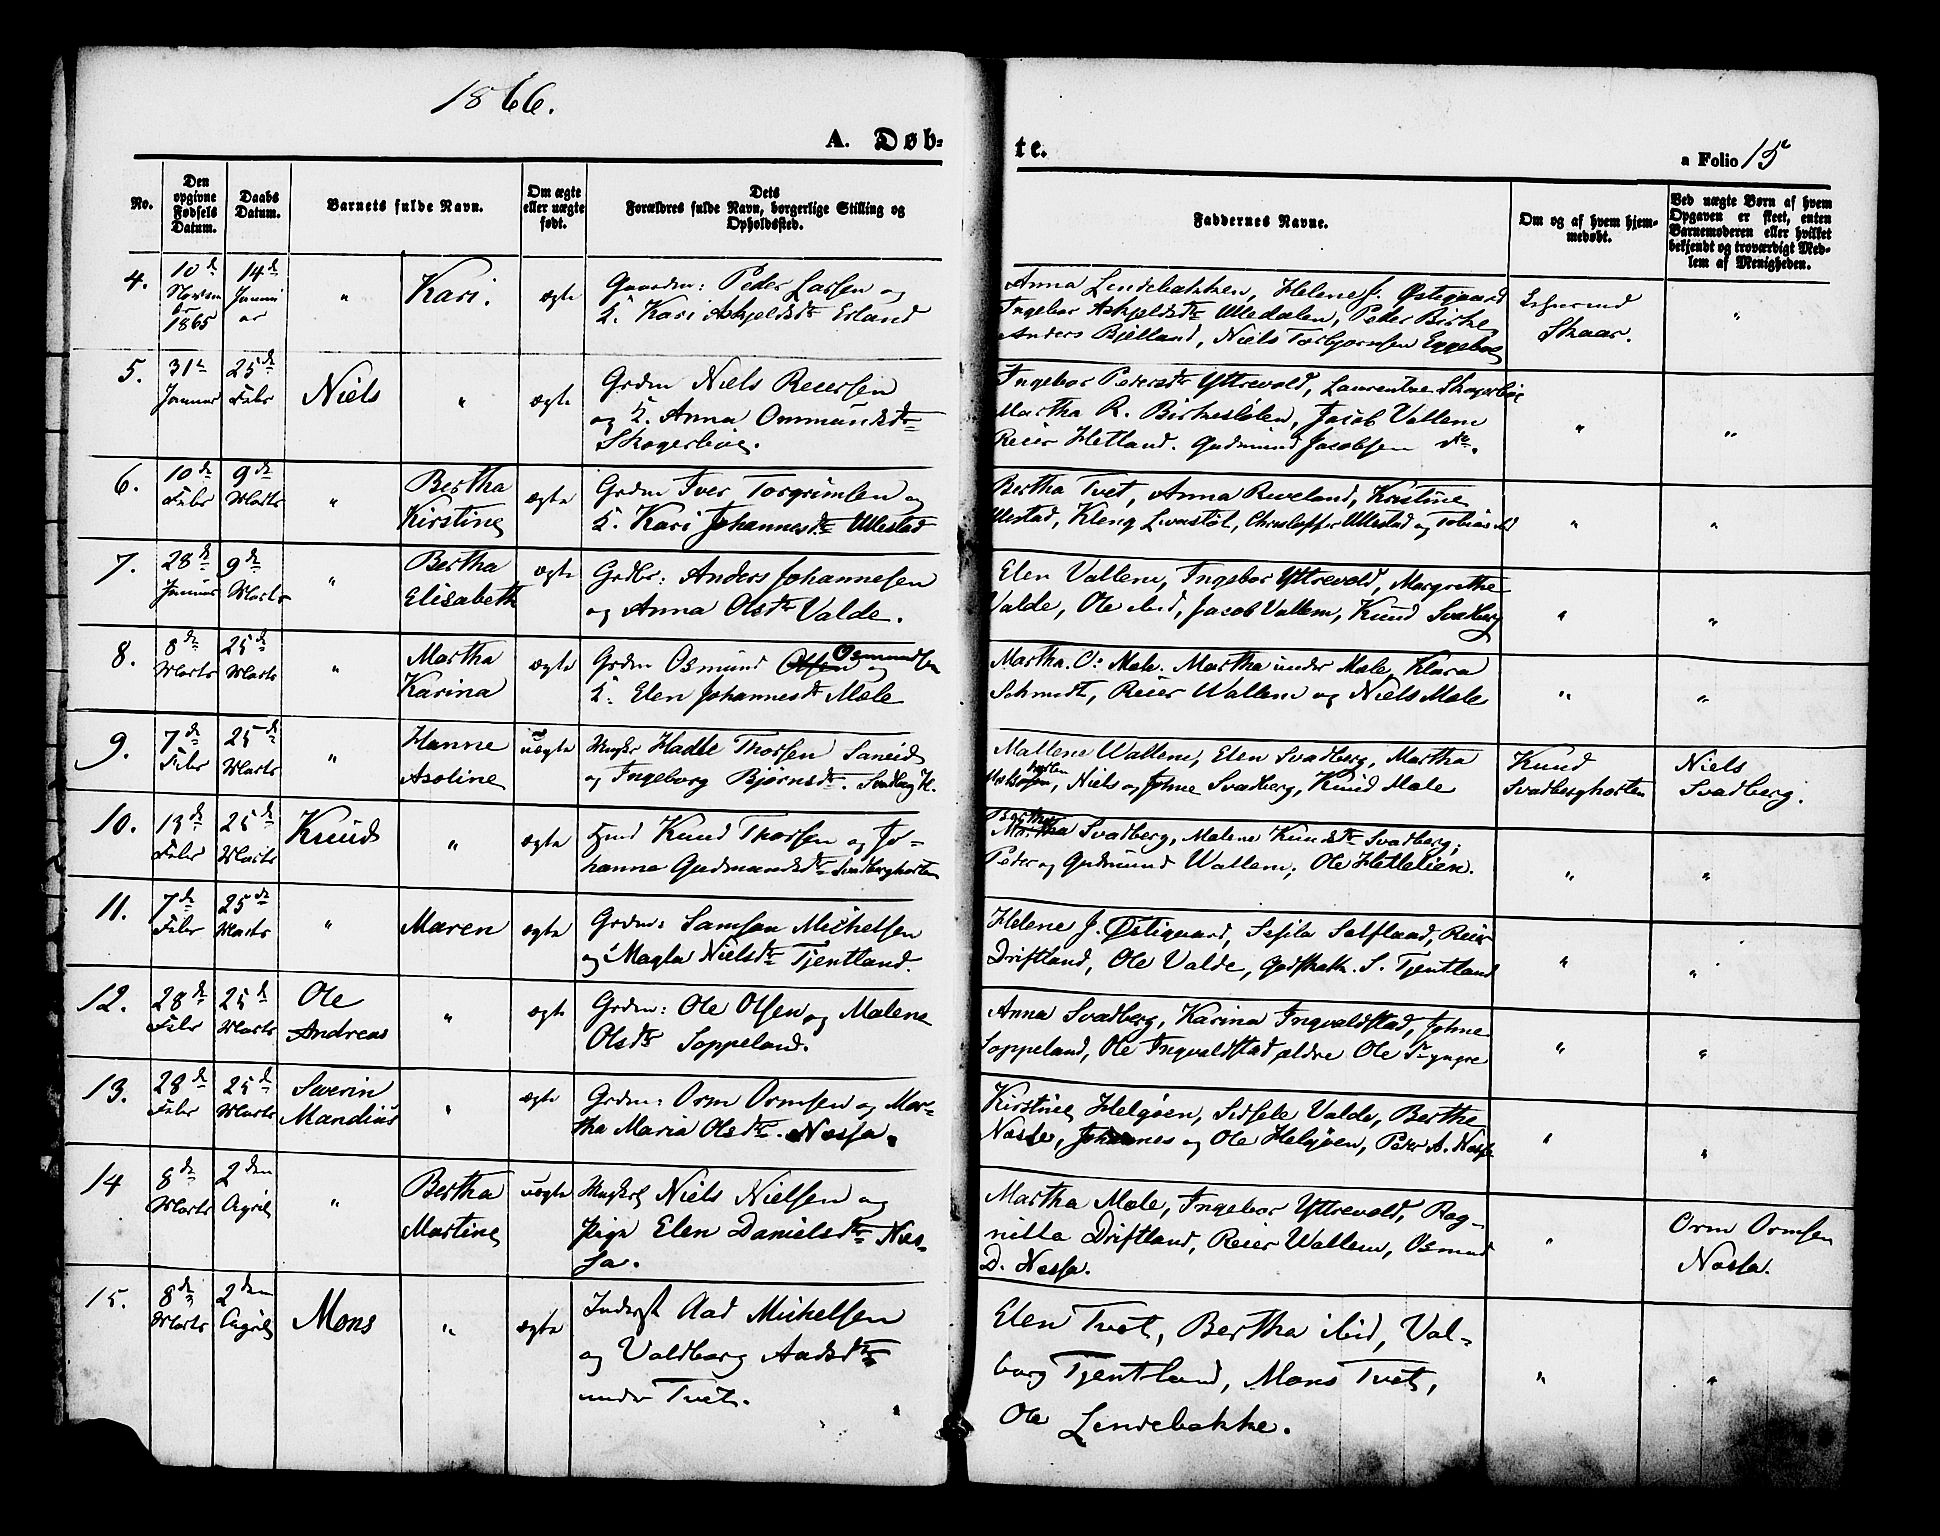 1866.
A. Døb-
te.
a Folio 15
No.
Den opgivne Fødsels Datum.
Daabs Datum.
Barnets fulde Navn.
Om ægte eller uægte født.
Dets Forældres fulde Navn, borgerlige Stilling og Opholdssted.
Faddernes Navne.
Om og af hvem hjemmedøbt.
Ved uægte Børn af hvem Opgaven er skeet, enten Barnemoderen eller hvilket bekjendt og troværdigt Medlem af Menigheden.
4.
10de Novem br 1865
14de Janu ar
"
Kari.
ægte
Gaardm: Peder Larsen og
K. Kari Askjeldsdtr Erland
Anna Lindebakken, Helene J. Østigaard
Ingebor Askjeldsdtr Ulledalen, Peder Birke
Anders Bjelland, Niels Torbjørnsen Eggebøe
Skaar.
"
5.
31te Januar
25de Febr
Niels
"
ægte
Grdm Niels Reiersen
og K. Anna Ommundsdtr
Skogerbøe.
Ingebor Pedersdtr Yttrevold, Laurentze Skogerbøe
Martha R. Birkesløen, Jacob Vallem
Reier Hetland. Gudmund Jacobsen
"
"
6.
10de Febr
9de Marts
"
Bertha
Kirstine
ægte
Grdm Iver Torgrimsen og
K. Kari Johannesdtr Ullestad
Bertha Tvet, Anna Riveland, Kristine
Ullestad, Kleng Livastøl, Christoffer Ullestad og Tobias ibd
"
"
7.
28de Januar
9de Marts
"
Bertha
Elisabeth
ægte
Grdbr: Anders Johannesen
og Anna Olsdtr Valde.
Elen Vallem, Ingebor Yttrevold, Margrethe
Valde, Ole ibid, Jacob Vallem, Knud Svadberg
"
"
8.
8de Marts
25de Marts
"
Martha
Karina
ægte
Grdm Osmund Olsen Osmundsen og
K. Elen Johannesdtr Mæle
Martha O: Mæle. Martha under Mæle, Klara
Schmidt, Reier Wallem og Niels Mæle
"
"
9.
7de Febr
25de Marts
"
Hanne
Asoline
uægte
Ungkr Hadle Thorsen Saneid
og Ingeborg Bjørnsdtr. Svadberg H.
Mallene Wallem, Elen Svadberg, Martha
Niels og Johne Svadberg, Knud Mæle
Knud
Svadberghorten
Niels
Svadberg.
10.
13de Febr
25de Marts
Knud
"
ægte
Hmd Knud Thorsen og Jo-
hanne Gudmundsdtr Svadberghorten
Bertha
Martha Svadberg, Malene Knudsdtr Svadberg;
Peder og Gudmund Wallem; Ole Hettelien.
"
"
11.
7de Febr
25de Marts
"
Maren
ægte
Grdm: Samson Michelsen
og Magla Nielsdtr Tjentland.
Helene J. Østigaard, Sesila Selfland, Reier
Driftland, Ole Valde, Godskalk. S. Tjentland
"
"
12.
28de Febr
25de Marts
Ole
Andreas
"
ægte
Grdm: Ole Olsen og Malene
Olsdtr Soppeland.
Anna Svadberg, Karina Ingvaldstad, Johne
Soppeland, Ole Ingvaldstad ældre Ole I yngre
"
"
13.
28de Febr
25de Marts
Severin
Mandius
"
ægte
Grdm: Orm Ormsen og Mar-
tha Maria Olsdtr. Næssa.
Kirstine Helgøen, Sidsele Valde, Berthe
Næsse, Johannes og Ole Helgøen, Peder A. Næsse
"
"
14
8de Marts
2den April
"
Bertha
Martine
uægte
Ungkrl Niels Nielsen og
Pige Elen Danielsdtr Næs-
sa.
Martha Mæle, Ingebor Yttrevold, Rag-
nille Driftland, Reier Wallem, Osmund
D. Næssa.
"
Orm Ormsen
Næssa.
15.
8de Marts
2den April
Mons
"
ægte
Inderst Aad Michelsen
og Valdborg Aadsdtr
under Tvet.
Elen Tvet, Bertha ibid, Val-
borg Tjentland, Mons Tvet,
Ole Lindebakke.
"
"